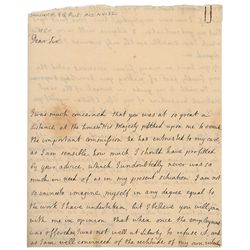 Dear Sir
I was much concerned that you was at so great a
distance at the time His Majesty pitched upon me to execute
the important commission he has entrusted to my care
as I am sensible how much I should have profitted
by your advice, which I undoubtedly never was so
much in need of as in my present situation. I am not
so vain to imagine myself in any degree equal to
the work I have undertaken but I believe you will join
with me in opinion that when once the employment
was offered I was not well at liberty to refuse it, and
as I am well convinced of the rectitude of my own